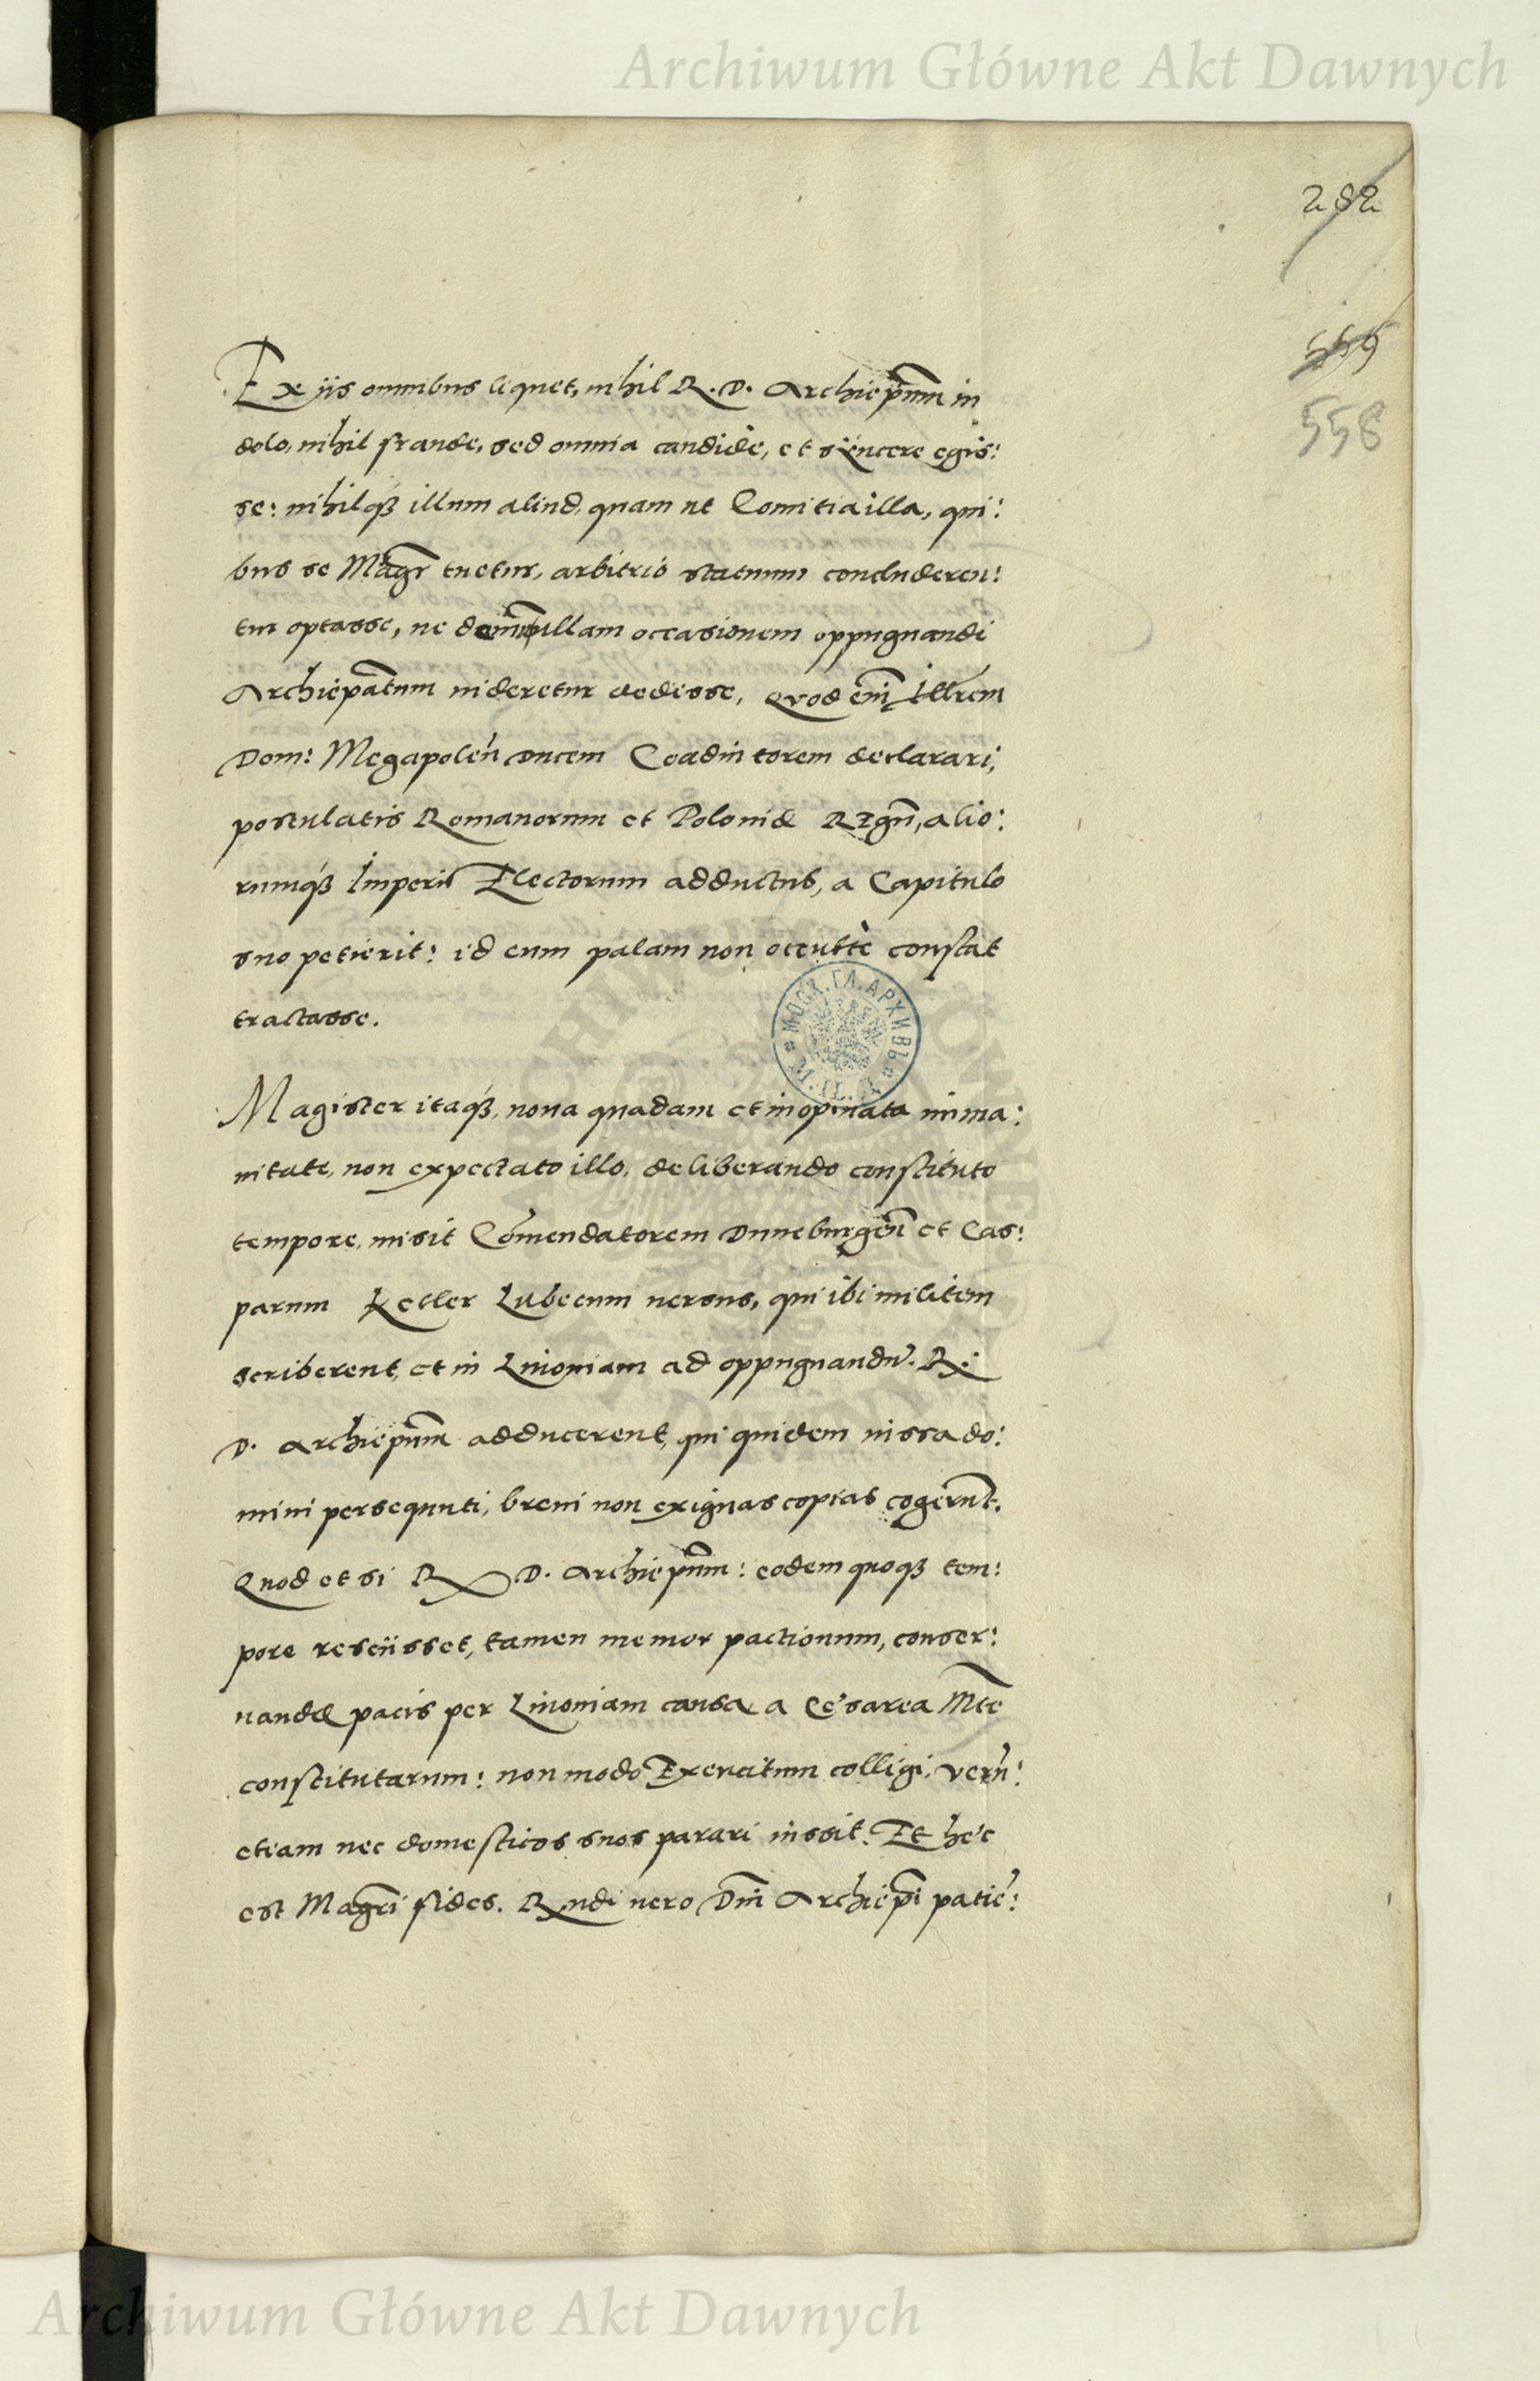 Archiwum Główne Akt Dawnych
282
559
558
Ex iis omnibus liquet, nihil R. D. Archiep̃um in
dolo, nihil fraude, sed omnia candidè, et sincere egis:
se: nihilq́ꝫ illum aliud, quam ut Comitia illa, qui:
bus se Magr̃ tuetur, arbitrio statuum concluderen:
tur optasse, ne ullam occasionem oppugnandi
Archiep̃atum uideretur dedisse, Quod em̃ Illr̃em
Dom: Megapoleń Ducem Coadiutorem declarari,
postulatis Romanorum et Poloniæ Regñ, alio:
rumq́ꝫ Imperii Electorum adductus, a Capitulo
suo petierit: id eum palam non occultè constat
tractasse.
МОСК. ГЛ. АРХИВЪ
Magister itaq́ꝫ, noua quadam et inopinata imma:
nitate, non expectato illo, deliberando constituto
tempore, misit Com̃endatorem Duneburgeñ et Cas:
parum Ketler Lubecum uersus, qui ibi militem
scriberent, et in Liuoniam ad oppugnandũ. R:
D. Archiep̃um adducerent, qui quidem iussa do:
mini persequuti, breui non exiguas copias cogerunt.
Quod et si R D. Archiep̃um: eodem quoqꝫ tem:
pore resciisset, tamen memor pactionum, conser:
uandæ pacis per Liuoniam causa a Cesarea Mt̃e
constitutarum: non modo Exercitum colligi, verũ:
etiam nec domesticos suos parari iussit. Et hec
est Magr̃i fides. Rndi uero Dñi Archiep̃i patiẽ:
Archiwum Główne Akt Dawnych